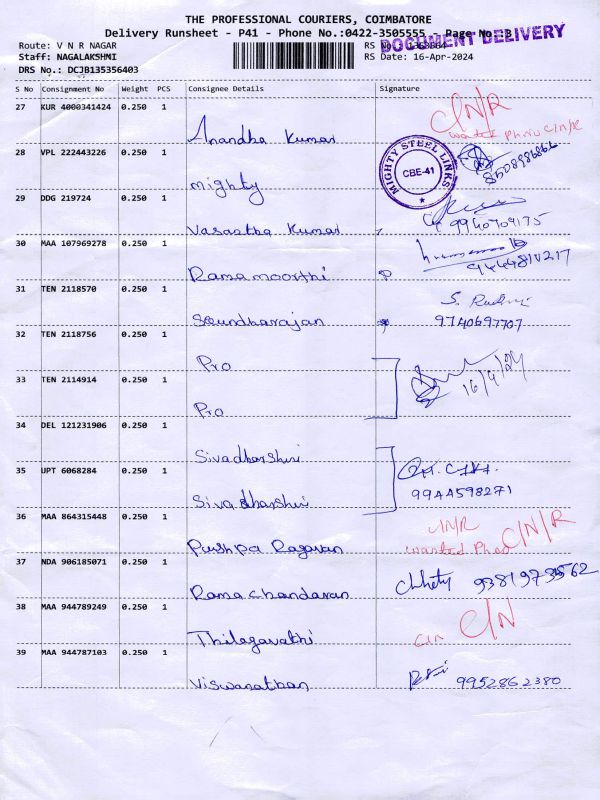 THE PROFESSIONAL COURIERS, COIMBATORE
Delivery Runsheet - P41 - Phone No.:0422-3505555 - Page No: 3
DOCUMENT DELIVERY
Route: V N R NAGAR
RS No
Staff: NAGALAKSHMI
RS Date: 16-Apr-2024
DRS No.: DCJB135356403
S No Consignment No Weight PCS Consignee Details Signature
27 KUR 4000341424 0.250 1
Anandha Kumar C/N/R
wanted
28 VPL 222443226 0.250 1
mighty MIGHTY STEEL LINKS CBE-41
29 DDG 219724 0.250 1
Vasantha Kumar 9940709175
30 MAA 107969278 0.250 1
Ramamoorthi
31 TEN 2118570 0.250 1
Soundharajan 9740697707
32 TEN 2118756 0.250 1
Pro
33 TEN 2114914 0.250 1
Pro 16/4/24
34 DEL 121231906 0.250 1
Sivadharshini
35 UPT 6068284 0.250 1
Sivadharshini 9944598271
36 MAA 864315448 0.250 1
Pushpa Ragavan C/N/R C/N/R
wanted
37 NDA 906185071 0.250 1
Ramachandaran
38 MAA 944789249 0.250 1
Thilagavathi C/N C/N
39 MAA 944787103 0.250 1
Viswanathan 9952862380